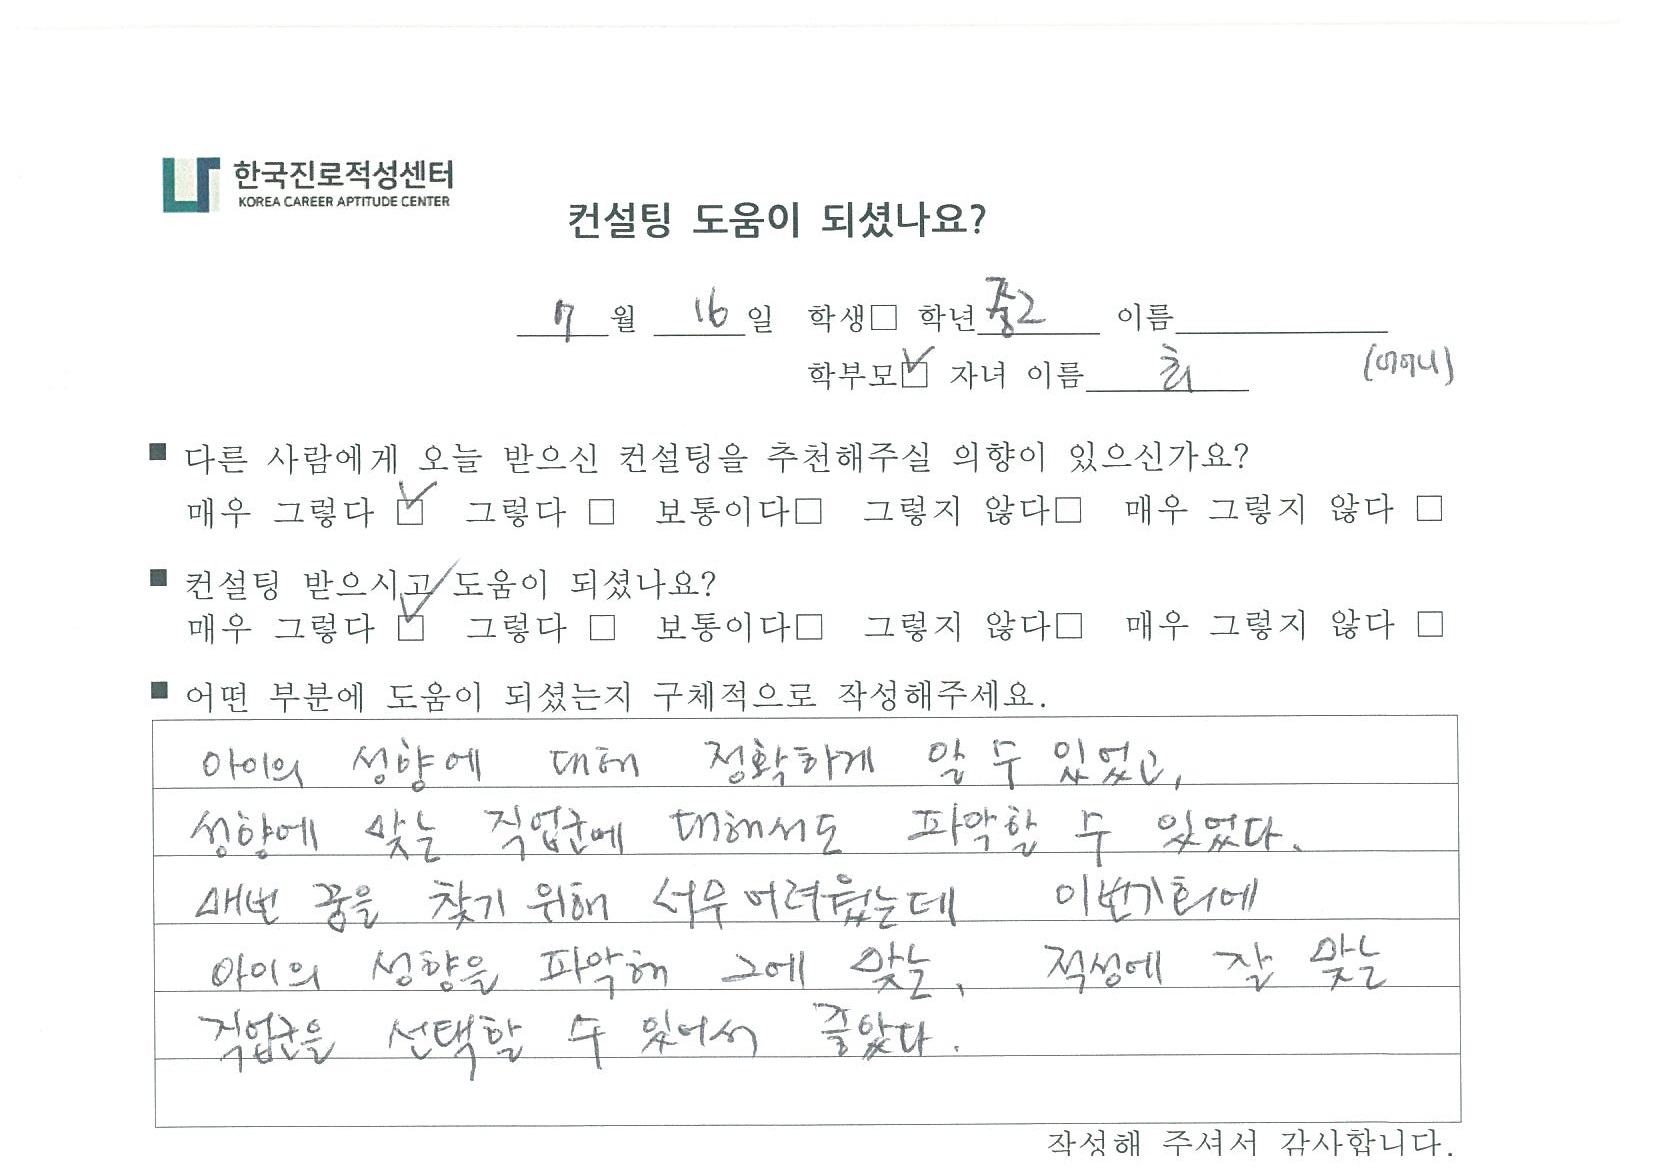 한국진로적성센터
KOREA CAREER APTITUDE CENTER
컨설팅 도움이 되셨나요?
7월 16일 학생□ 학년 중2 이름
학부모☑ 자녀 이름 희 (어머니)
■ 다른 사람에게 오늘 받으신 컨설팅을 추천해주실 의향이 있으신가요?
매우 그렇다 ☑ 그렇다 □ 보통이다□ 그렇지 않다□ 매우 그렇지 않다 □
■ 컨설팅 받으시고 도움이 되셨나요?
매우 그렇다 ☑ 그렇다 □ 보통이다□ 그렇지 않다□ 매우 그렇지 않다 □
■ 어떤 부분에 도움이 되셨는지 구체적으로 작성해주세요.
아이의 성향에 대해 정확하게 알 수 있었고,
성향에 맞는 직업군에 대해서도 파악할 수 있었다.
매번 꿈을 찾기 위해 너무 어려웠는데 이번기회에
아이의 성향을 파악해 그에 맞는, 적성에 잘 맞는
직업군을 선택할 수 있어서 좋았다.
작성해 주셔서 감사합니다.